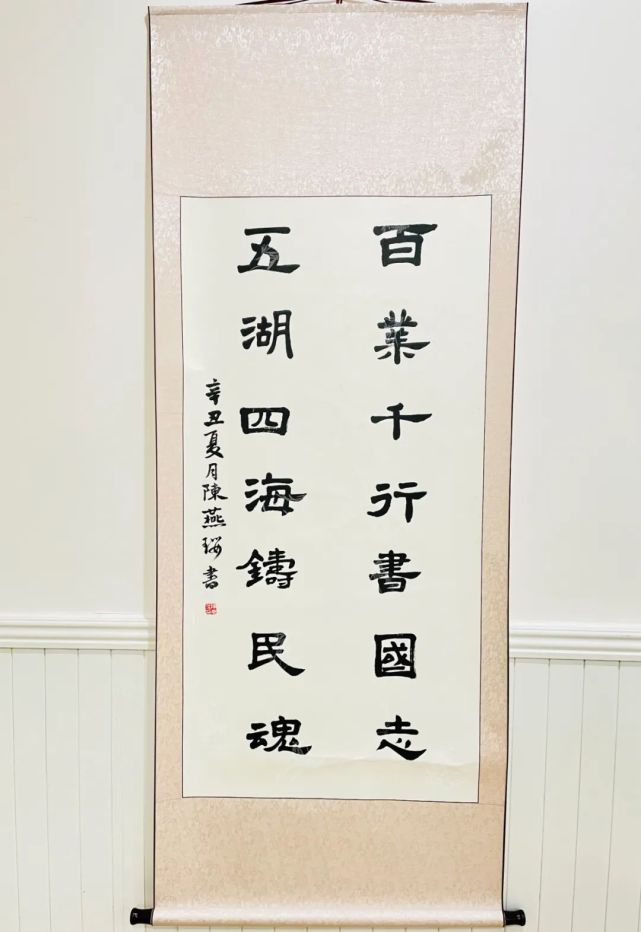 百業千行書國志
五湖四海鑄民魂
辛丑夏月陳燕㛤書